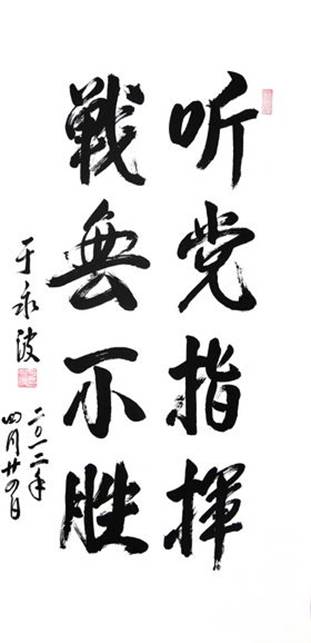 听党指挥
戰無不胜
于永波
二〇一二年
四月廿四日